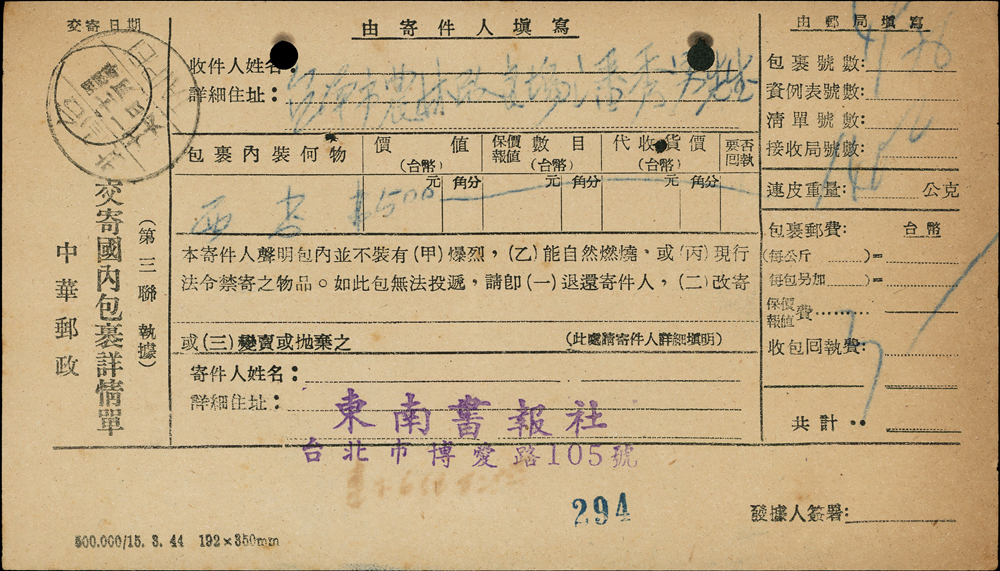 交寄日期
由寄件人塡寫
由郵局塡寫
收件人姓名：
詳細住址：
包裹號數：
資例表號數：
清單號數：
接收局號數：
連皮重量： 公克
包裹內裝何物
價值
(台幣)
保價報値
數目
(台幣)
代收貨價
(台幣)
要否回執
元 角分 元 角分 元 角分
西書 $1500
本寄件人聲明包內並不裝有(甲)爆烈，(乙)能自然燃燒，或(丙)現行
法令禁寄之物品。如此包無法投遞，請卽(一)退還寄件人，(二)改寄
或(三)變賣或抛棄之 (此處請寄件人詳細塡明)
寄件人姓名：
詳細住址：
東南書報社
台北市博愛路105號
294
包裹郵費： 台幣
(每公斤 )=
(每包另加 )=
保價報値費
收包回執費：
共計：
發據人簽署:
(第三聯 執據)
交寄國內包裹詳情單
中華郵政
500.000/15. 3. 44 192×350mm